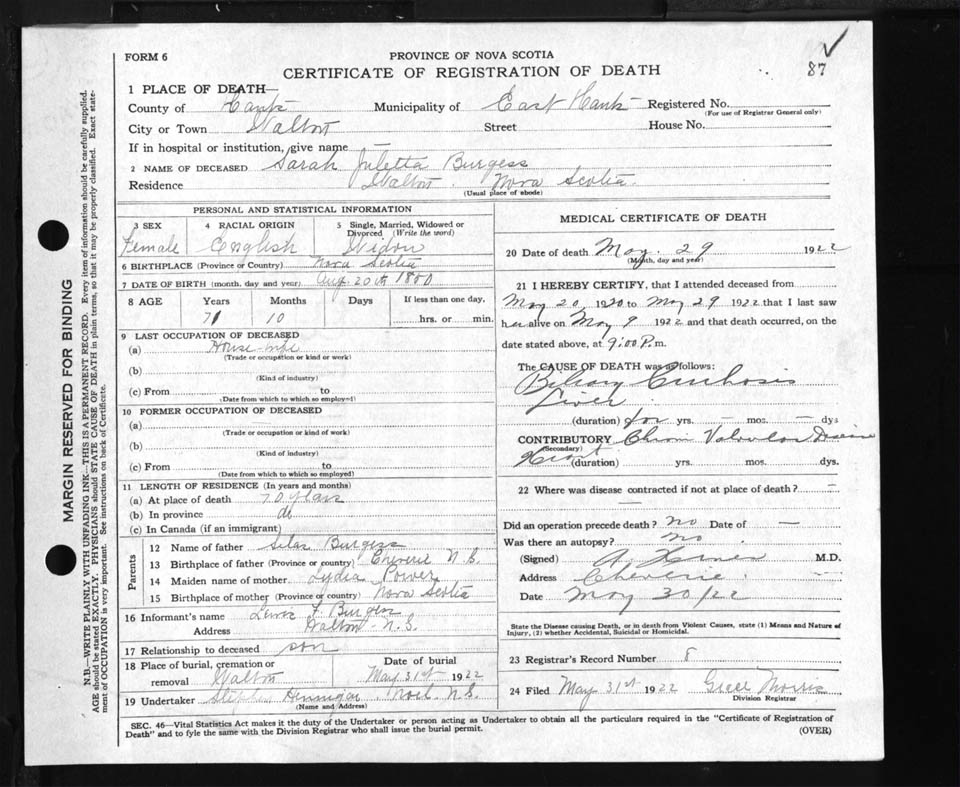 FORM 6
PROVINCE OF NOVA SCOTIA
CERTIFICATE OF REGISTRATION OF DEATH
87
1 PLACE OF DEATH—
County of Hants Municipality of East Hants Registered No.
(For use of Registrar General only)
City or Town Walton Street House No.
If in hospital or institution, give name —
2 NAME OF DECEASED Sarah Juletta Burgess
Residence Walton. Nova Scotia.
(Usual place of abode)
PERSONAL AND STATISTICAL INFORMATION
3 SEX 4 RACIAL ORIGIN 5 Single, Married, Widowed or Divorced (Write the word)
Female English Widow
6 BIRTHPLACE (Province or Country) Nova Scotia
7 DATE OF BIRTH (month, day and year) Aug 20th 1850
8 AGE Years Months Days If less than one day,
71 10 hrs. or min.
9 LAST OCCUPATION OF DECEASED
(a) House-wife
(Trade or occupation or kind or work)
(b)
(Kind of industry)
(c) From to
(Date from which to which so employed)
10 FORMER OCCUPATION OF DECEASED
(a)
(Trade or occupation or kind of work)
(b)
(Kind of industry)
(c) From to
(Date from which to which so employed)
11 LENGTH OF RESIDENCE (In years and months)
(a) At place of death 70 years
(b) In province do
(c) In Canada (if an immigrant)
Parents
12 Name of father Silas Burgess
13 Birthplace of father (Province or country) Cheverie N.S.
14 Maiden name of mother Lydia Power
15 Birthplace of mother (Province or country) Nova Scotia
16 Informant's name F. Burgess
Address Walton - N.S.
17 Relationship to deceased son
18 Place of burial, cremation or removal Walton Date of burial May 31st 1922
19 Undertaker Stephen Hennigar Noel N.S.
(Name and Address)
MEDICAL CERTIFICATE OF DEATH
20 Date of death May 29 1922
(Month, day and year)
21 I HEREBY CERTIFY, that I attended deceased from
May 20, 1920 to May 29 1922 that I last saw
her alive on May 9 1922 and that death occurred, on the
date stated above, at 9:00 P.m.
The CAUSE OF DEATH was as follows:
Biliary Cirrhosis
Liver
(duration) yrs. — mos. — dys
CONTRIBUTORY Chron Valvular Disease
(Secondary)
Heart (duration) yrs. mos. dys.
22 Where was disease contracted if not at place of death? —
—
Did an operation precede death? no Date of —
Was there an autopsy? no
(Signed) M.D.
Address Cheverie
Date May 30/22
State the Disease causing Death, or in death from Violent Causes, state (1) Means and Nature of
Injury, (2) whether Accidental, Suicidal or Homicidal.
23 Registrar's Record Number 8
24 Filed May 31st 1922 Morris
Division Registrar
SEC. 46—Vital Statistics Act makes it the duty of the Undertaker or person acting as Undertaker to obtain all the particulars required in the "Certificate of Registration of
Death" and to fyle the same with the Division Registrar who shall issue the burial permit.
(OVER)
MARGIN RESERVED FOR BINDING
N.B.—WRITE PLAINLY WITH UNFADING INK—THIS IS A PERMANENT RECORD. Every item of information should be carefully supplied.
AGE should be stated EXACTLY. PHYSICIANS should STATE CAUSE OF DEATH in plain terms, so that it may be properly classified. Exact state-
ment of OCCUPATION is very important. See instructions on back of Certificate.